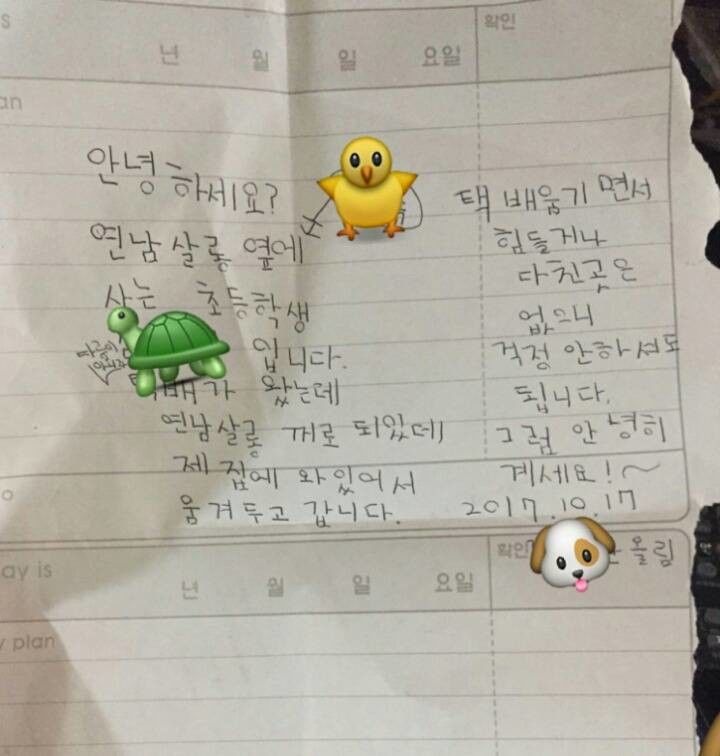 s 년 월 일 요일 확인
an
안녕하세요?
연남살롱 옆에
사는 초등학생
입니다.
배가 왔는데
연남살롱 꺼로 되있데
제 집에 와있어서
움겨두고 갑니다.
택배움기면서
힘들거나
다친곳은
없으니
걱정 안하셔도
됩니다.
그럼 안녕히
계세요!~
2017.10.17
올림
o
ay is 년 월 일 요일 확인
y plan